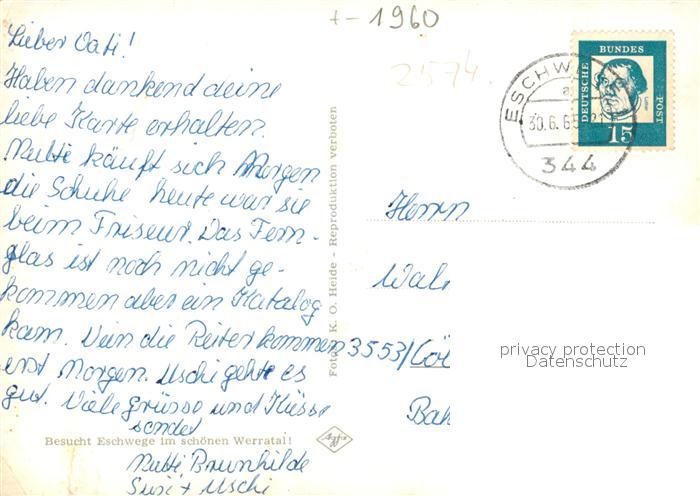 + - 1960
2574.
Lieber Vati!
Haben dankend deine
liebe Karte erhalten.
Mutti käuft sich Morgen
die Schuhe heute war sie
beim Friseur. Das Fern-
glas ist noch nicht ge-
kommen aber ein Katalog
kam. Nein die Reiter kommen
erst Morgen. Uschi gehte es
gut. Viele Grüsse und Küsse
sendet
Mutti Brunhilde
Susi + Uschi
Besucht Eschwege im schönen Werratal!
Foto: K. O. Heide - Reproduktion verboten
Agfa
DEUTSCHE
BUNDES
POST
15
ESCHW
a
30.6.6
344
Herrn
Wal
3553/Cöl
Bah
privacy protection
Datenschutz